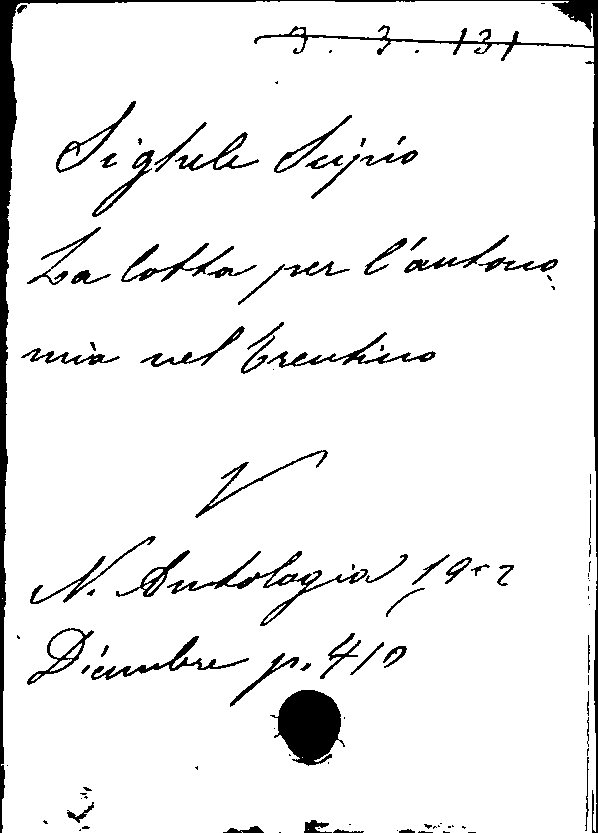 3. 3. 131
Sighele Scipio
La lotta per l'autono
mia nel Trentino
V
N. Antologia 1902
Dicembre p. 410